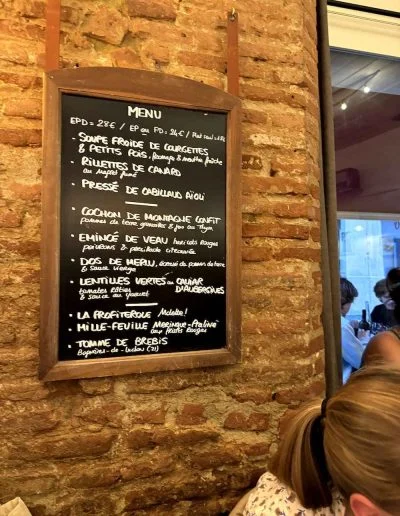 MENU
EPD = 28€ / EP ou PD = 24€ / Plat seul =
• SOUPE FROIDE DE COURGETTES
& PETITS POIS, fromage & menthe fraîche
• RILLETTES DE CANARD
au magret fumé
• PRESSÉ DE CABILLAUD AÏOLI
• COCHON DE MONTAGNE CONFIT
pommes de terre, & jus au thym
• EMINCÉ DE VEAU haricots rouges
poivrons & persillade citronnée
• DOS DE MERLU, écrasé de pommes de terre
& sauce vierge
• LENTILLES VERTES CAVIAR
D'AUBERGINES
tomates rôties
& sauce au yaourt
• LA PROFITEROLE
• MILLE-FEUILLE Meringue-Praliné
aux fruits rouges
• TOMME DE BREBIS
Bagnères-de-Luchon (31)